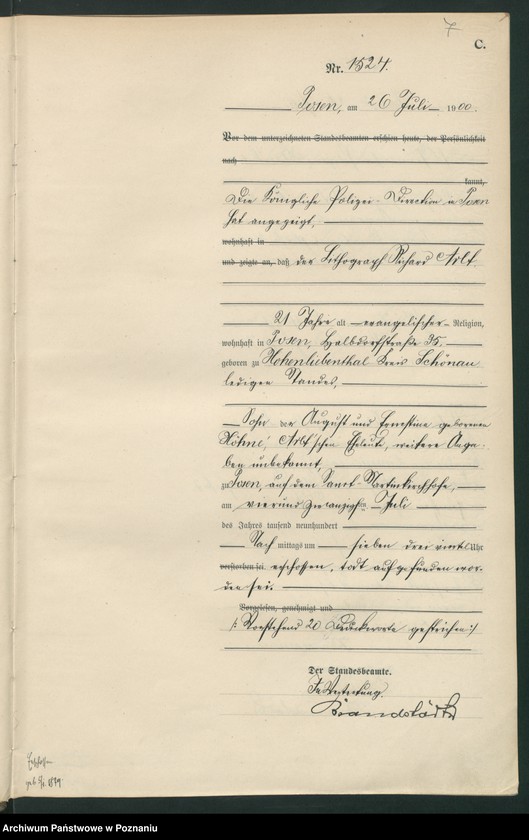 7
C.
Nr. 1524.
Posen, am 26 Juli 1900.
Vor dem unterzeichneten Standesbeamten erschien heute, der Persönlichkeit
nach
kannt,
Die Königliche Polizei-Direction in Posen
hat angezeigt,
wohnhaft in
und zeigte an, daß der Lithograph Richard Arlt
21 Jahre alt evangelischer Religion,
wohnhaft in Posen, Halbdorfstraße 35.
geboren zu Hohenliebenthal Kreis Schönau
ledigen Standes,
Sohn der August und Ernestine geborenen
Höhne, Arlt'schen Eheleute, weitere Anga-
ben unbekannt
zu Posen, auf dem Sanct-Martinkirchhofe,
am vierundzwanzigsten Juli
des Jahres tausend neunhundert
Nach mittags um sieben drei viertel Uhr
verstorben sei erschossen, todt aufgefunden wor-
den sei.
Vorgelesen, genehmigt und
/: Vorstehend 20 Druckworte gestrichen :/
Der Standesbeamte.
In Vertretung.
Brandstädter
geb. 1879
Archiwum Państwowe w Poznaniu